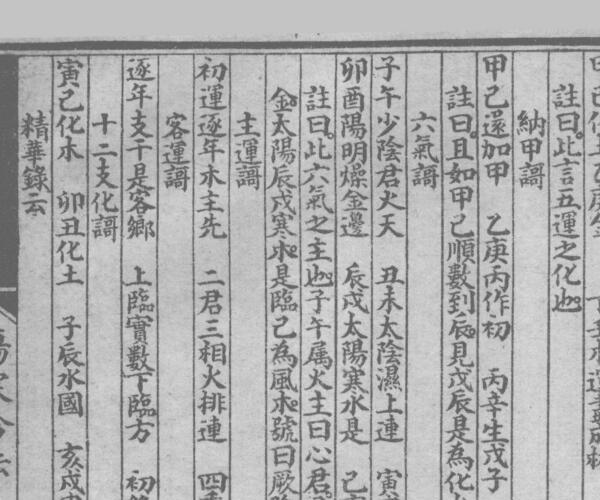 註曰此言五運之化也
納甲謌
甲己還加甲 乙庚丙作初 丙辛生戊子
註曰且如甲己順數到辰見戊辰是為化
六氣謌
子午少陰君火天 丑未太陰濕上連 寅
卯酉陽明燥金邊 辰戌太陽寒水是 己
註曰此六氣之主也子午属火主曰心君
金太陽辰戌寒水是臨己為風木號曰厥
主運謌
初運逐年木主先 二君三相火排連 四
客運謌
逐年支干是客鄉 上臨實數下臨方 初
十二支化謌
寅己化木 卯丑化土 子辰水國 亥戌
精華錄云